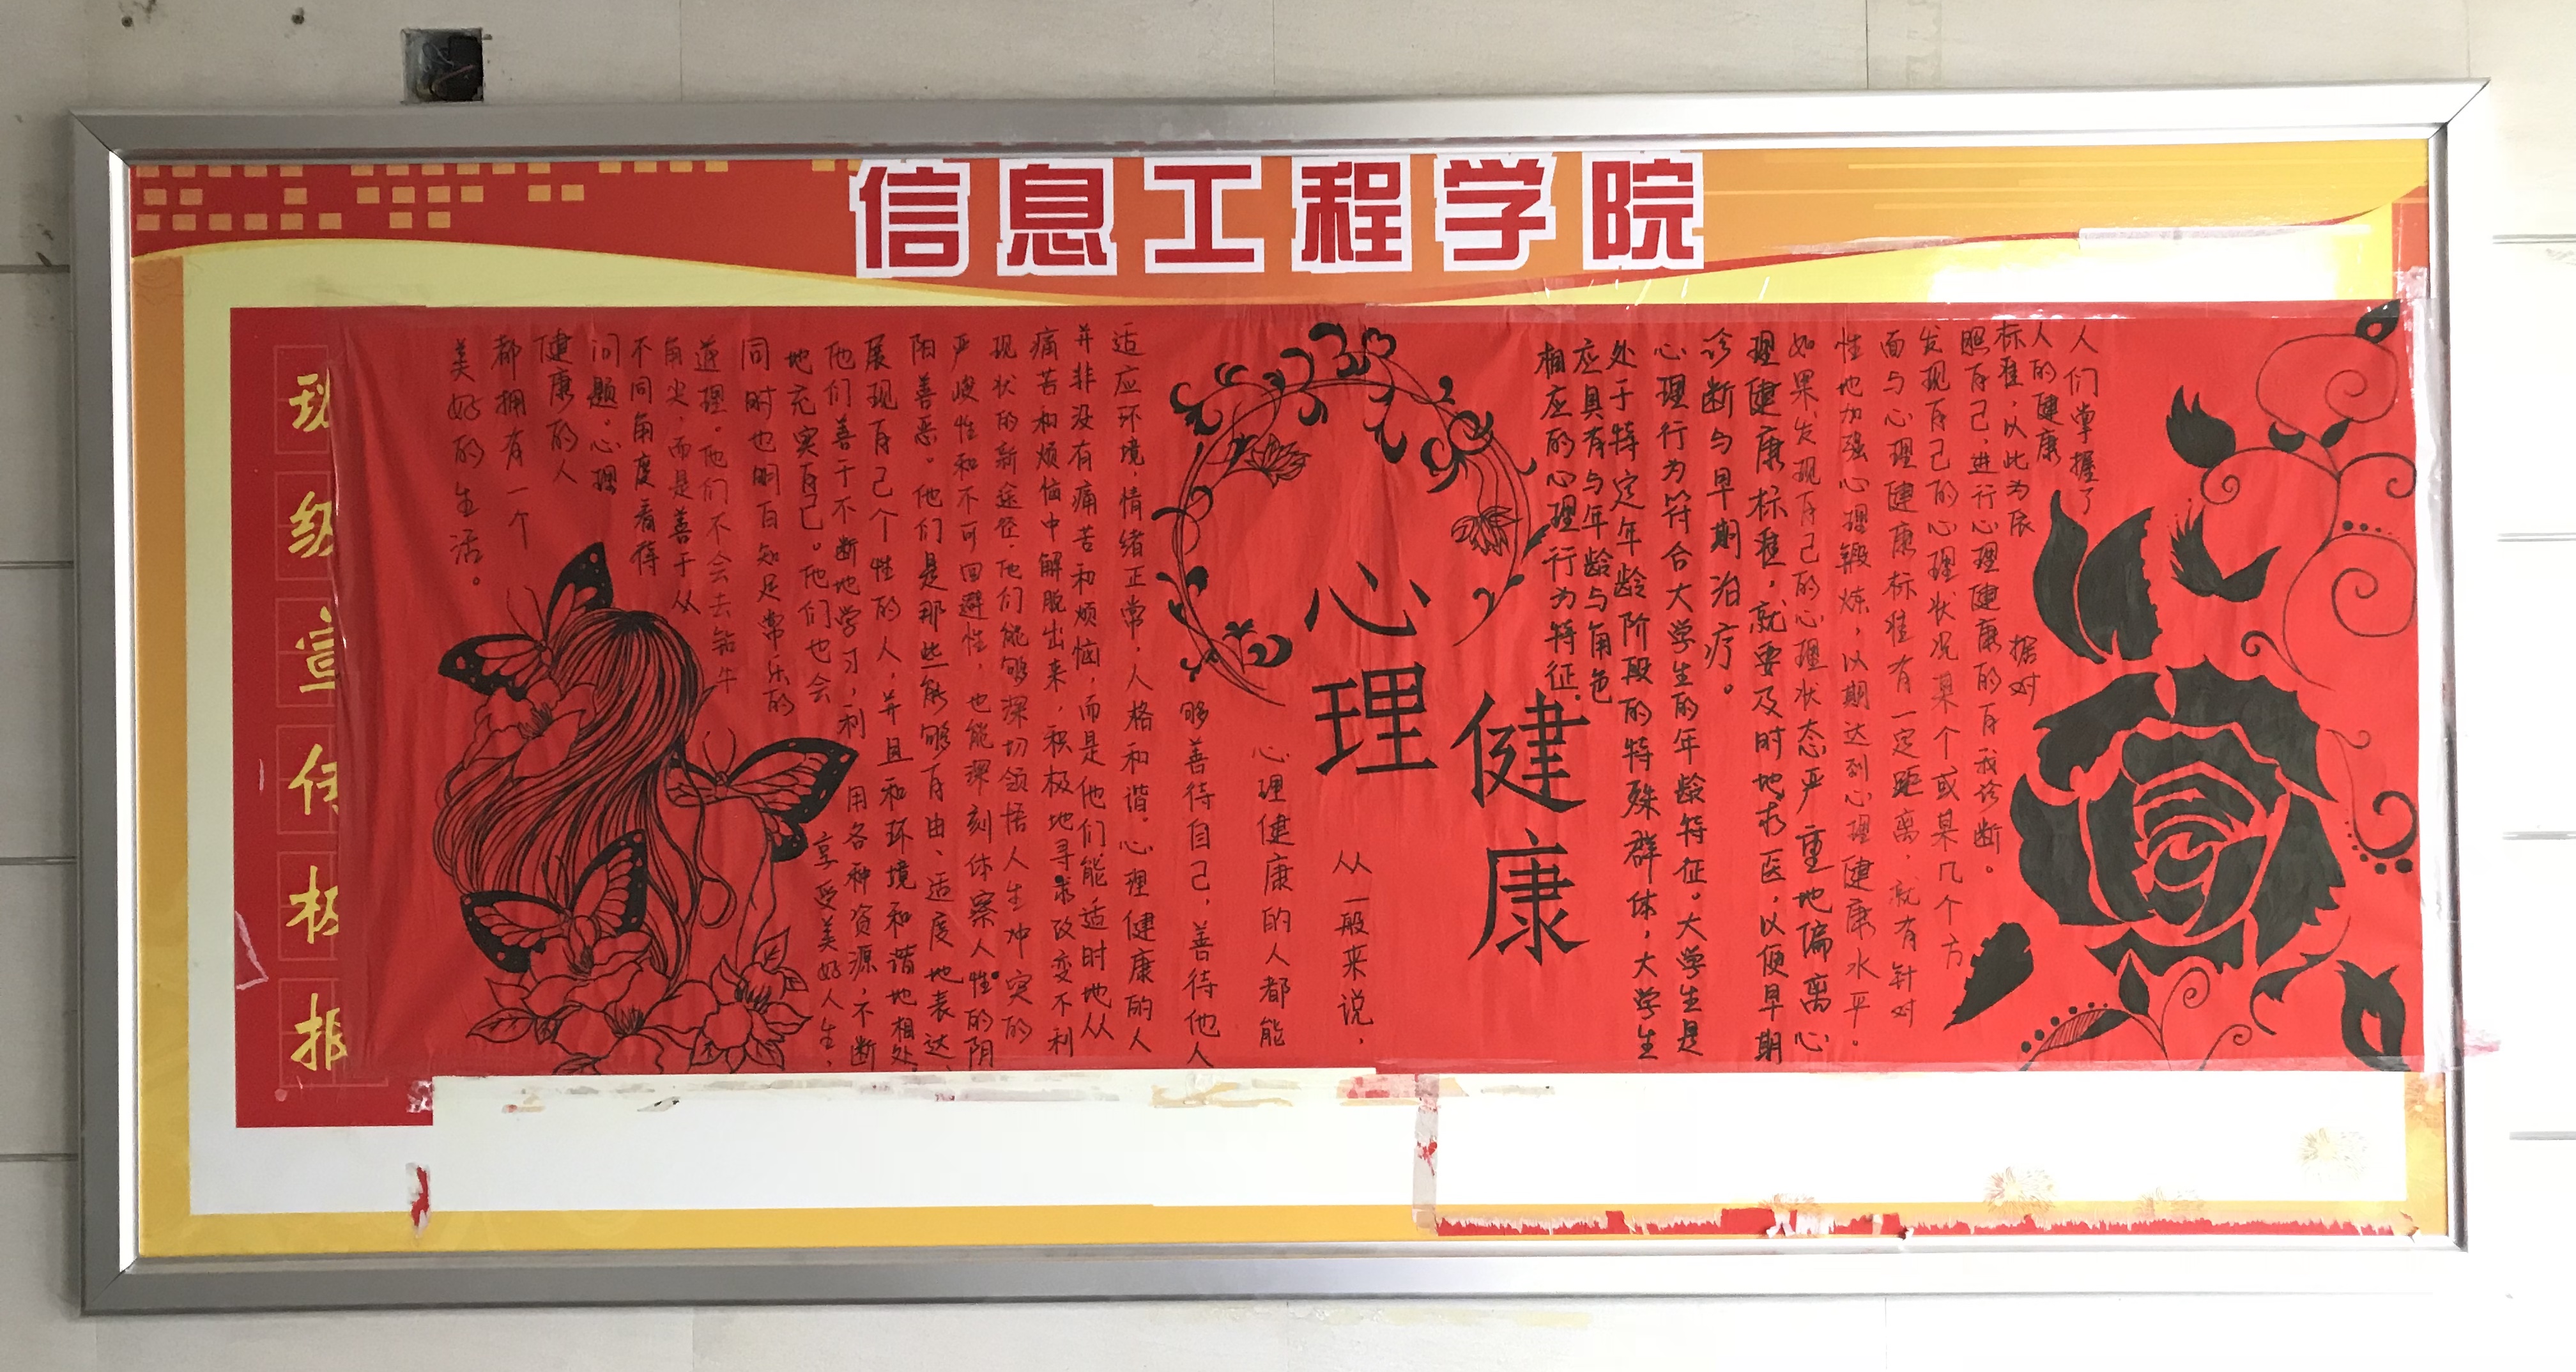 信息工程学院
班级宣传板报
心理
健康
人们掌握了
人的健康
标准，以此为依
据对
照自己，进行心理健康的自我诊断。
发现自己的心理状况某个或某几个方
面与心理健康标准有一定距离，就有针对
性地加强心理锻炼，以期达到心理健康水平。
如果发现自己的心理状态严重地偏离心
理健康标准，就要及时地求医，以便早期
诊断与早期治疗。
心理行为符合大学生的年龄特征。大学生是
处于特定年龄阶段的特殊群体，大学生
应具有与年龄与角色
相应的心理行为特征。
从一般来说，
心理健康的人都能
够善待自己，善待他人
适应环境，情绪正常，人格和谐。心理健康的人
并非没有痛苦和烦恼，而是他们能适时地从
痛苦和烦恼中解脱出来，积极地寻求改变不利
现状的新途径。他们能够深切领悟人生冲突的
严峻性和不可回避性，也能深刻体察人性的阴
阳善恶。他们是那些能够自由、适度地表达、
展现自己个性的人，并且和环境和谐地相处。
他们善于不断地学习，利
用各种资源，不断
地充实自己。他们也会
享受美好人生，
同时也明白知足常乐的
道理。他们不会去钻牛
角尖，而是善于从
不同角度看待
问题。心理
健康的人
都拥有一个
美好的生活。